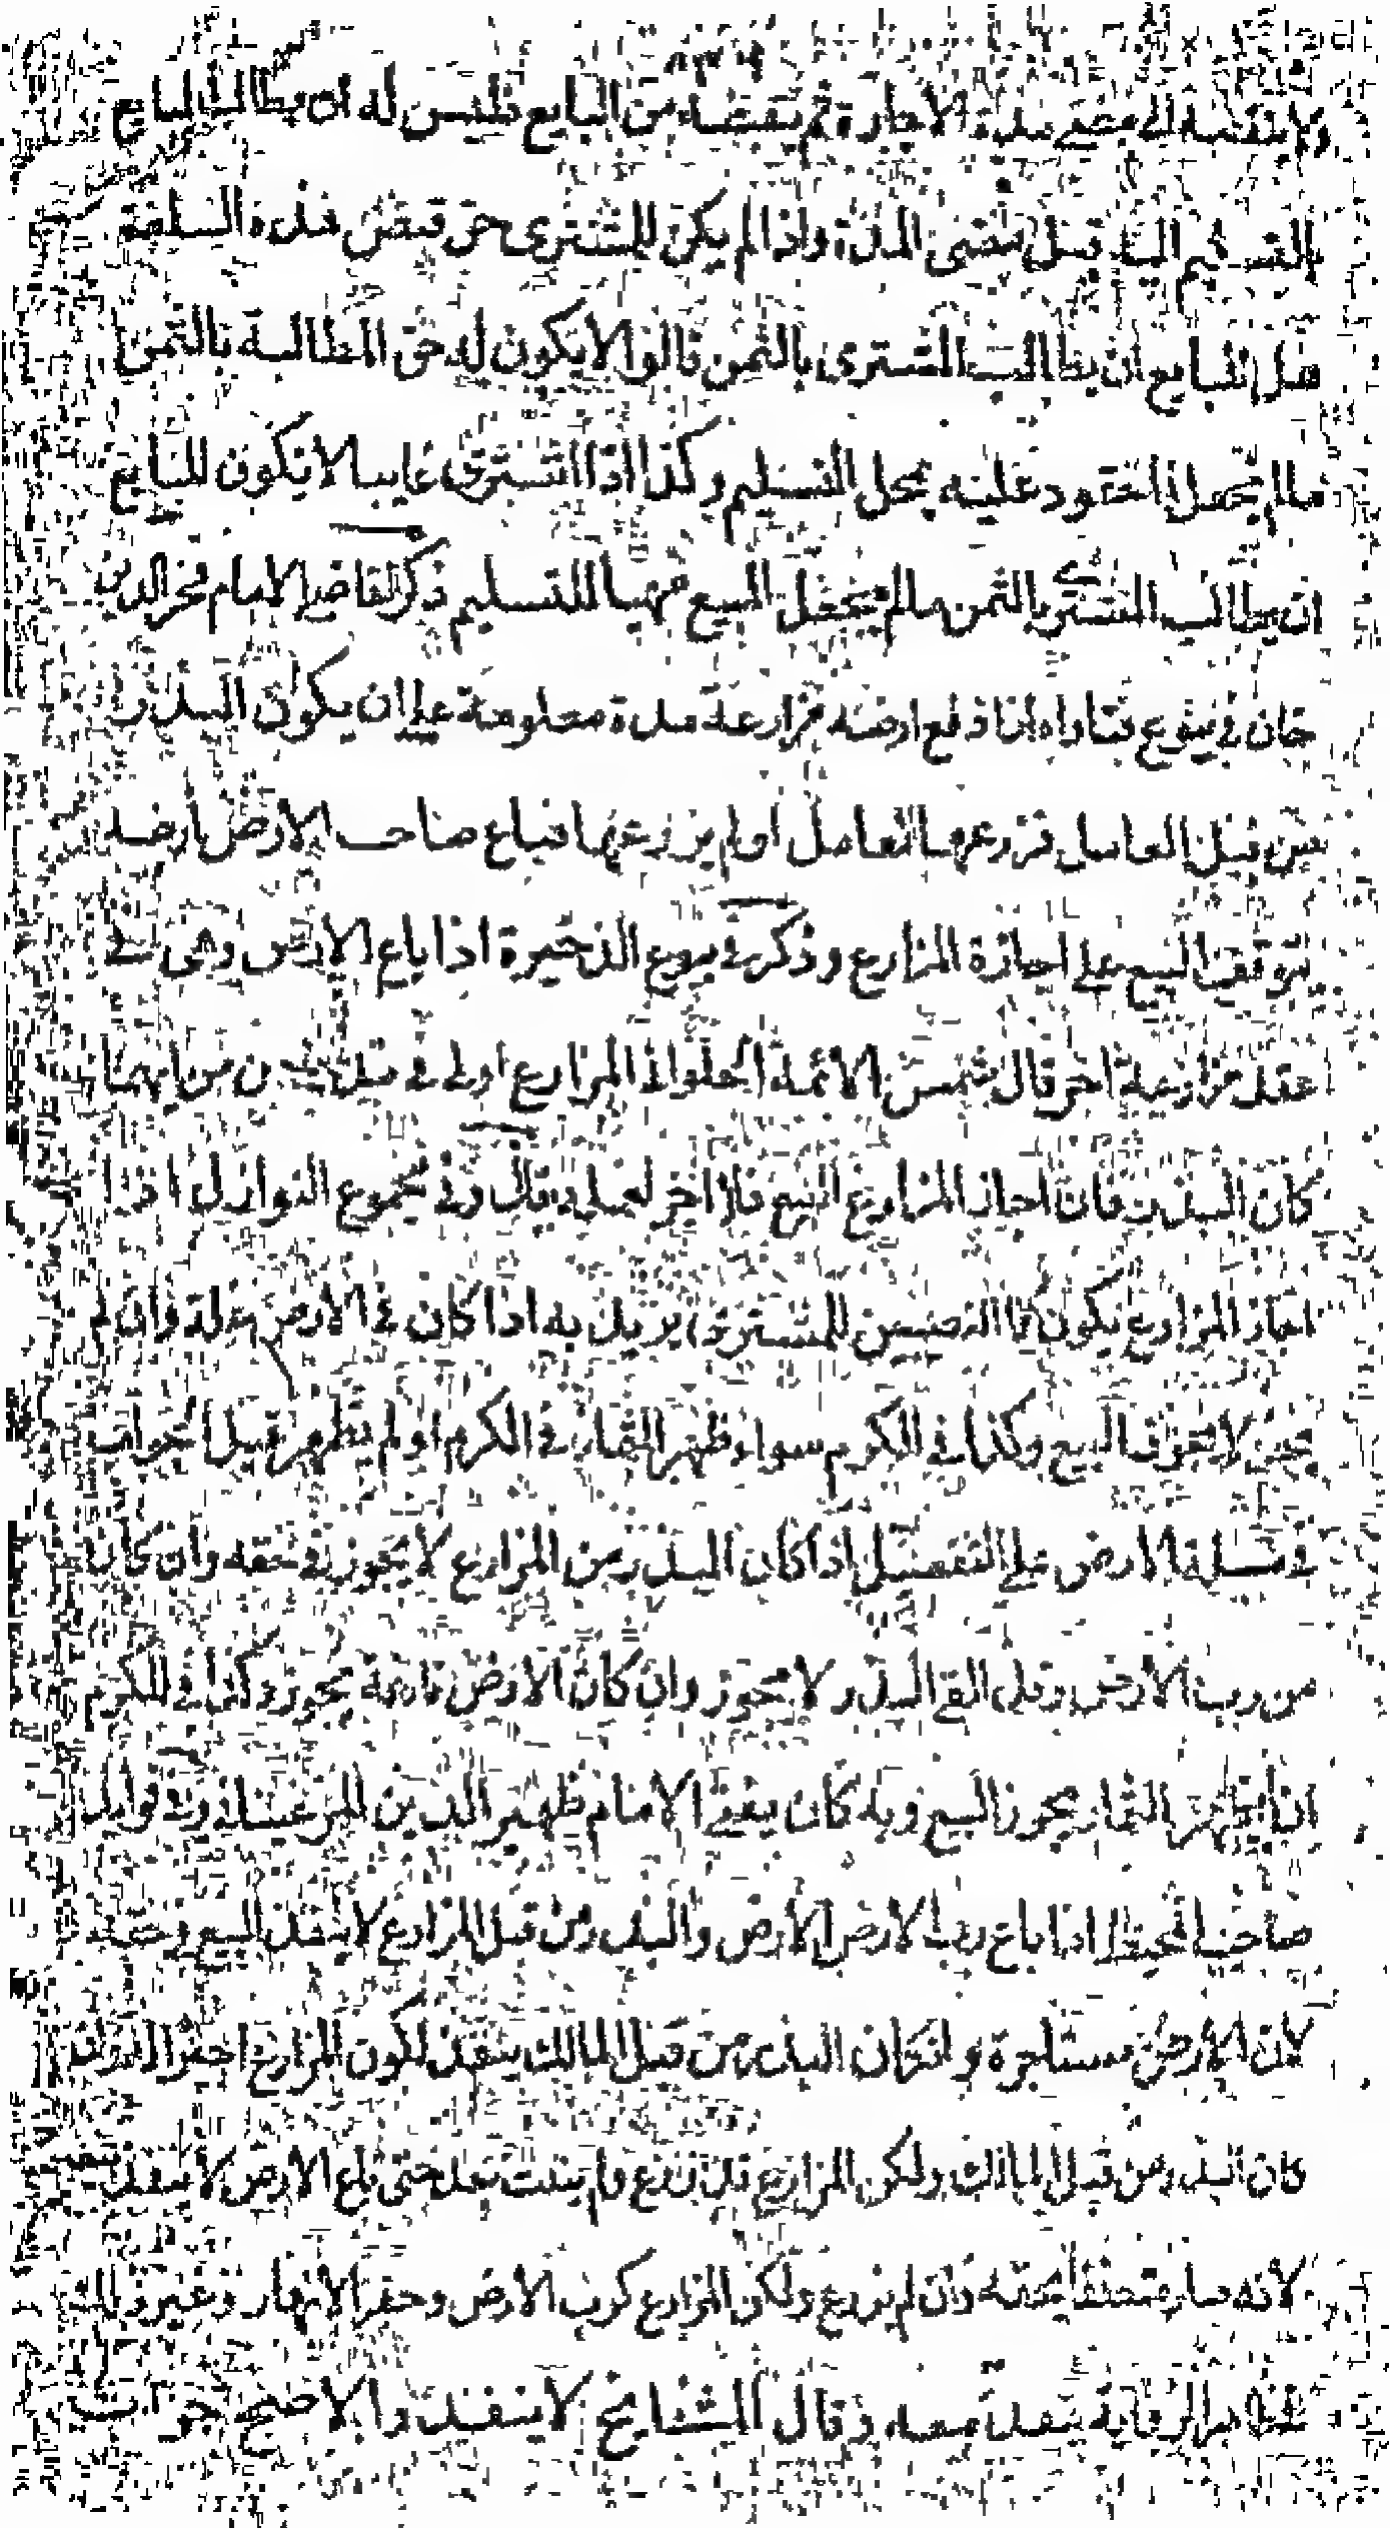 ولا ينقضه الى مضى مدة الاجارة ثم يقبضه من البايع فليس له ان يطالب البايع
بالتسليم اليه قبل مضى المدة واذا لم يكن للمشترى حق قبض هذه السلعة
هل للبايع ان يطالب المشترى بالثمن قالوا لا يكون له حق المطالبة بالثمن
ما لم يجعل المعقود عليه بمحل التسليم وكذا اذا اشترى غايبا لا يكون للبايع
ان يطالب المشترى بالثمن ما لم يجعل المبيع مهيا للتسليم ذكر القاضى الامام فخر الدين
خان فى بيوع فتاواه اذا دفع ارضه مزارعة مدة معلومة على ان يكون البذر
من قبل العامل فزرعها العامل او لم يزرعها فباع صاحب الارض ارضه
يتوقف البيع على اجازة المزارع وذكر فى بيوع الذخيرة اذا باع الارض وهى فى
عقد مزارعة اخر قال شمس الائمة الحلوانى المزارع اولى فى من ايهما
كان البذر فان اجاز المزارع البيع فلا اجر لعمله قال وفى مجموع النوازل اذا
اجاز المزارع يكون كلا النصيبين للمشترى يريد به اذا كان فى الارض غلة وان لم
يجز لا يجوز البيع وكذا فى الكروم سواء ظهر الثمار فى الكرم او لم يظهر قيل الجواب
فى مسئلة الارض على التفصيل اذا كان البذر من المزارع لا يجوز فى حقه وان كان
من رب الارض وقد القى البذر لا يجوز وان كان الارض فارغة يجوز وكذا فى الكرم
ان لم يظهر الثمار يجوز البيع وبه كان يفتى الامام ظهير الدين المرغينانى وفى فوايد
صاحب المحيط اذا باع رب الارض الارض والبذر من قبل المزارع لا ينفذ البيع
لان الارض مستاجرة وان كان البذر من قبل المالك ينفذ لكون المزارع اجيرا له وان
كان البذر من قبل المالك ولكن المزارع قد زرع ولم ينبت بعد حتى باع الارض لا ينفذ
لانه صار متعلقا بحقه وان لم يزرع ولكن المزارع كرب الارض وحفر الانهار وغيره
ظاهر الرواية ينفذ بيعه وقال المشايخ لا ينفذ والاصح جواب